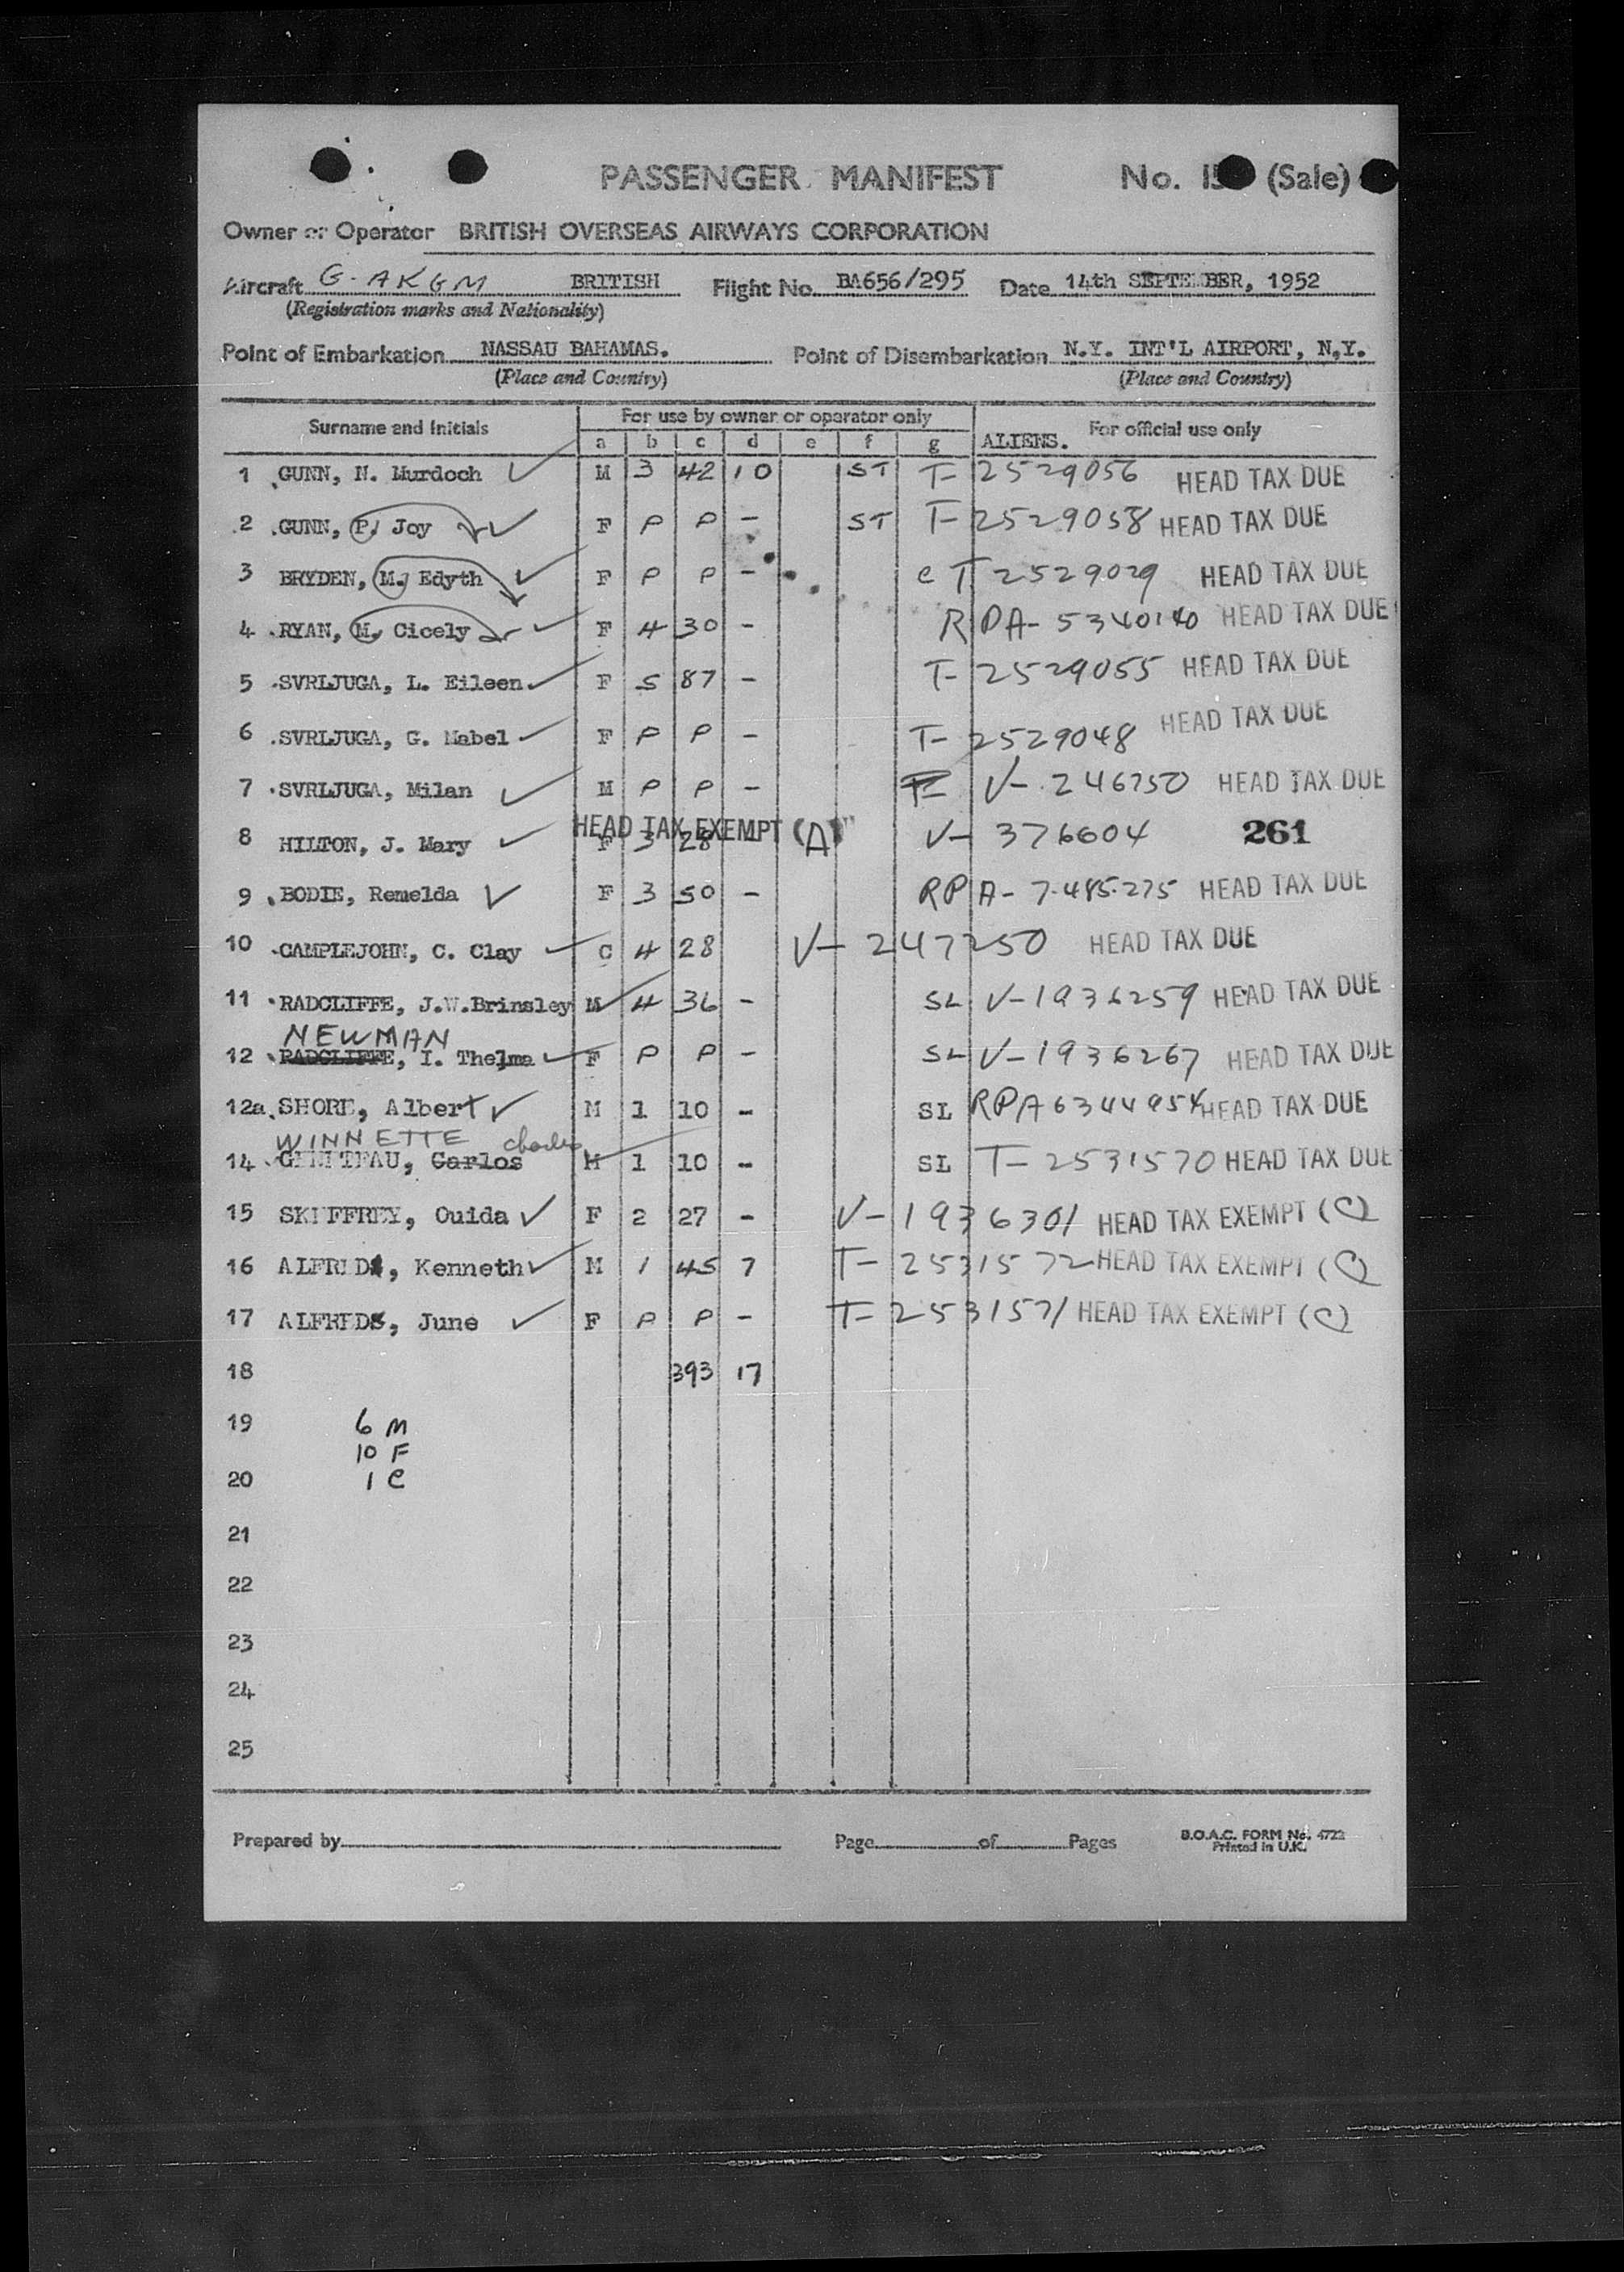 PASSENGER MANIFEST No. 15 (Sale)
Owner or Operator BRITISH OVERSEAS AIRWAYS CORPORATION
Aircraft G-AKGM BRITISH Flight No. BA656/295 Date 14th SEPTEMBER, 1952
(Registration marks and Nationality)
Point of Embarkation NASSAU BAHAMAS. Point of Disembarkation N.Y. INT'L AIRPORT, N.Y.
(Place and Country) (Place and Country)
Surname and Initials For use by owner or operator only For official use only
a b c d e f g ALIENS.
1 GUNN, N. Murdoch M 3 42 10 ST T- 2529056 HEAD TAX DUE
2 GUNN, P. Joy F P P - ST T- 2529058 HEAD TAX DUE
3 BRYDEN, M. Edyth F P P - C T 2529029 HEAD TAX DUE
4 RYAN, M. Cicely F 4 30 - RPA- 5340140 HEAD TAX DUE
5 SVRLJUGA, L. Eileen F 5 87 - T- 2529055 HEAD TAX DUE
6 SVRLJUGA, G. Mabel F P P - T- 2529048 HEAD TAX DUE
7 SVRLJUGA, Milan M P P - V- 246750 HEAD TAX DUE
8 HILTON, J. Mary F 3 28 - HEAD TAX EXEMPT (A) V- 376604 261
9 BODIE, Remelda F 3 50 - RPA- 7.485.275 HEAD TAX DUE
10 CAMPLEJOHN, C. Clay C 4 28 V- 247250 HEAD TAX DUE
11 RADCLIFFE, J.W.Brinsley M 4 36 - SL V-1936259 HEAD TAX DUE
NEWMAN
12 RADCLIFFE, I. Thelma F P P - SL V-1936267 HEAD TAX DUE
12a SHORE, Albert M 1 10 - SL RPA 6344954 HEAD TAX DUE
WINNETTE Charles
14 Carlos M 1 10 - SL T- 2531570 HEAD TAX DUE
15 SKEFFREY, Ouida F 2 27 - V-1936301 HEAD TAX EXEMPT (C)
16 ALFREDS, Kenneth M 1 45 7 T- 2531572 HEAD TAX EXEMPT (C)
17 ALFREDS, June F P P - T- 2531571 HEAD TAX EXEMPT (C)
18 393 17
19 6 M
10 F
20 1 C
21
22
23
24
25
Prepared by Page of Pages B.O.A.C. FORM No. 4722
Printed in U.K.